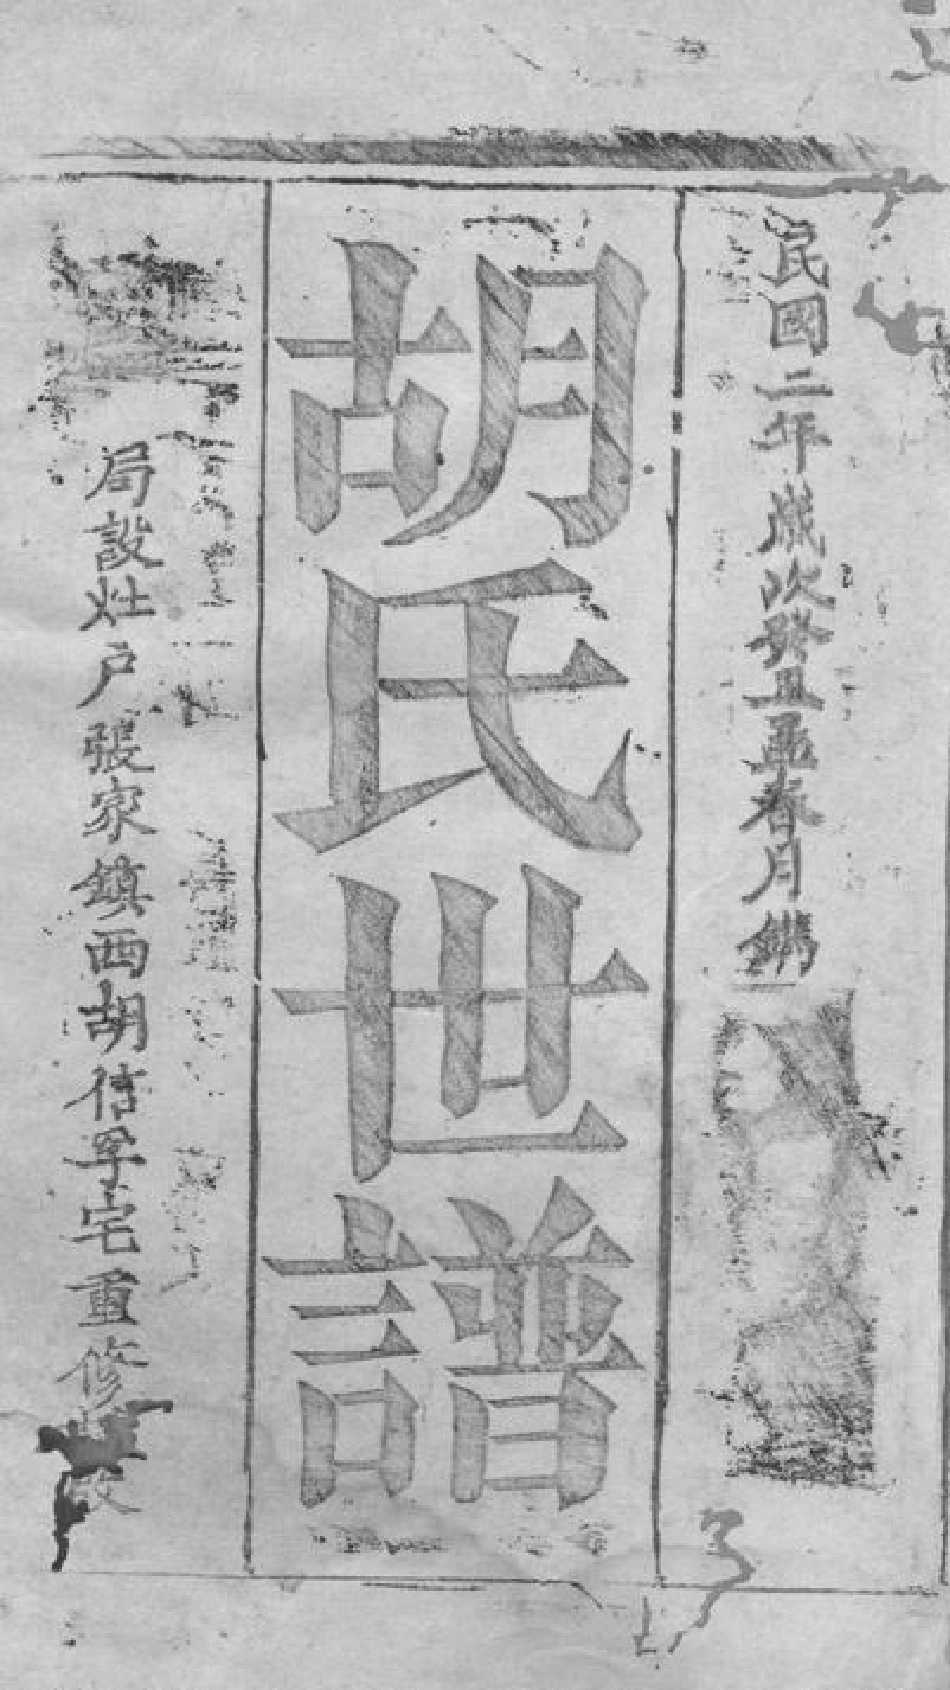 民國二年歲次癸丑孟春月鐫
胡氏世譜
局設灶户張家鎮西胡信孚宅重修